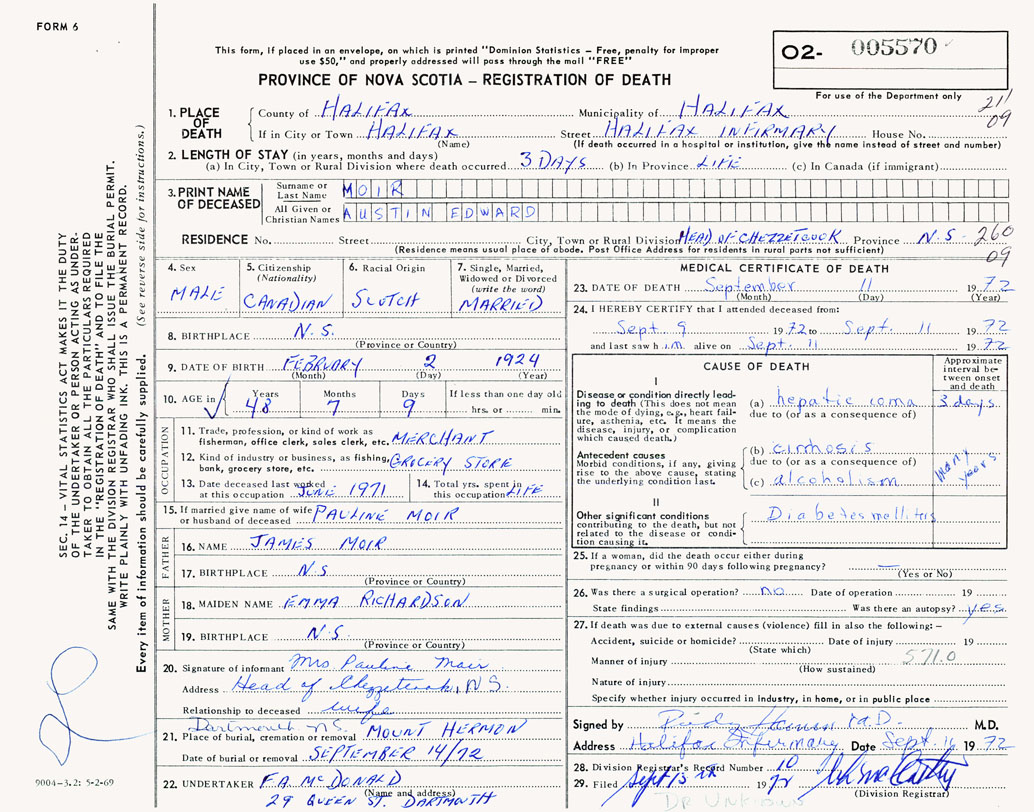 FORM 6
This form, if placed in an envelope, on which is printed "Dominion Statistics – Free, penalty for improper
use $50," and properly addressed will pass through the mail "FREE"
PROVINCE OF NOVA SCOTIA – REGISTRATION OF DEATH
O2- 005570
For use of the Department only
211
09
1. PLACE OF DEATH
County of HALIFAX Municipality of HALIFAX
If in City or Town HALIFAX Street HALIFAX INFIRMARY House No.
(Name) (If death occurred in a hospital or institution, give the name instead of street and number)
2. LENGTH OF STAY (in years, months and days)
(a) In City, Town or Rural Division where death occurred 3 DAYS (b) In Province LIFE (c) In Canada (if immigrant)
3. PRINT NAME OF DECEASED
Surname or Last Name MOIR
All Given or Christian Names AUSTIN EDWARD
RESIDENCE No. Street City, Town or Rural Division HEAD OF CHEZZETCOOK Province N.S- 260
(Residence means usual place of abode. Post Office Address for residents in rural parts not sufficient) 09
4. Sex MALE
5. Citizenship (Nationality) CANADIAN
6. Racial Origin SCOTCH
7. Single, Married, Widowed or Divorced (write the word) MARRIED
8. BIRTHPLACE N.S.
(Province or Country)
9. DATE OF BIRTH FEBRUARY 2 1924
(Month) (Day) (Year)
10. AGE in Years Months Days If less than one day old
48 7 9 hrs. or min.
OCCUPATION
11. Trade, profession or kind of work as
fisherman, office clerk, sales clerk, etc. MERCHANT
12. Kind of industry or business, as fishing,
bank, grocery store, etc. GROCERY STORE
13. Date deceased last worked
at this occupation JUNE 1971
14. Total yrs. spent in
this occupation LIFE
15. If married give name of wife
or husband of deceased PAULINE MOIR
FATHER
16. NAME JAMES MOIR
17. BIRTHPLACE N.S
(Province or Country)
MOTHER
18. MAIDEN NAME EMMA RICHARDSON
19. BIRTHPLACE N.S.
(Province or Country)
20. Signature of informant Mrs Pauline Moir
Address Head of Chezzetcook, N.S.
Relationship to deceased wife
Dartmouth N.S. MOUNT HERMON
21. Place of burial, cremation or removal
Date of burial or removal SEPTEMBER 14/72
22. UNDERTAKER F.A. McDONALD
(Name and address)
29 QUEEN ST. DARTMOUTH
MEDICAL CERTIFICATE OF DEATH
23. DATE OF DEATH September 11 1972
(Month) (Day) (Year)
24. I HEREBY CERTIFY that I attended deceased from:
Sept. 9 1972 to Sept. 11 1972
and last saw him alive on Sept. 11 1972
CAUSE OF DEATH
Approximate interval between onset and death
I
Disease or condition directly leading to death (This does not mean the mode of dying, e.g., heart failure, asthenia, etc. It means the disease, injury, or complication which caused death.)
(a) hepatic coma 3 days
due to (or as a consequence of)
Antecedent causes
Morbid conditions, if any, giving rise to the above cause, stating the underlying condition last.
(b) cirrhosis
due to (or as a consequence of)
(c) alcoholism many years
II
Other significant conditions
contributing to the death, but not related to the disease or condition causing it.
Diabetes mellitus
25. If a woman, did the death occur either during
pregnancy or within 90 days following pregnancy? —
(Yes or No)
26. Was there a surgical operation? no Date of operation 19
State findings Was there an autopsy? yes
27. If death was due to external causes (violence) fill in also the following: –
Accident, suicide or homicide? Date of injury 19
(State which)
Manner of injury 571.0
(How sustained)
Nature of injury
Specify whether injury occurred in industry, in home, or in public place
Signed by M.D. M.D.
Address Halifax Infirmary Date Sept. 16 1972
28. Division Registrar's Record Number 10
29. Filed Sept 13th 1972
(Division Registrar)
DR UNKNOWN
SEC. 14 – VITAL STATISTICS ACT MAKES IT THE DUTY
OF THE UNDERTAKER OR PERSON ACTING AS UNDERTAKER
TO OBTAIN ALL THE PARTICULARS REQUIRED
IN THE "REGISTRATION OF DEATH" AND TO FILE THE
SAME WITH THE DIVISION REGISTRAR WHO SHALL ISSUE THE BURIAL PERMIT.
WRITE PLAINLY WITH UNFADING INK. THIS IS A PERMANENT RECORD.
Every item of information should be carefully supplied. (See reverse side for instructions.)
9004-3.2: 5-2-69